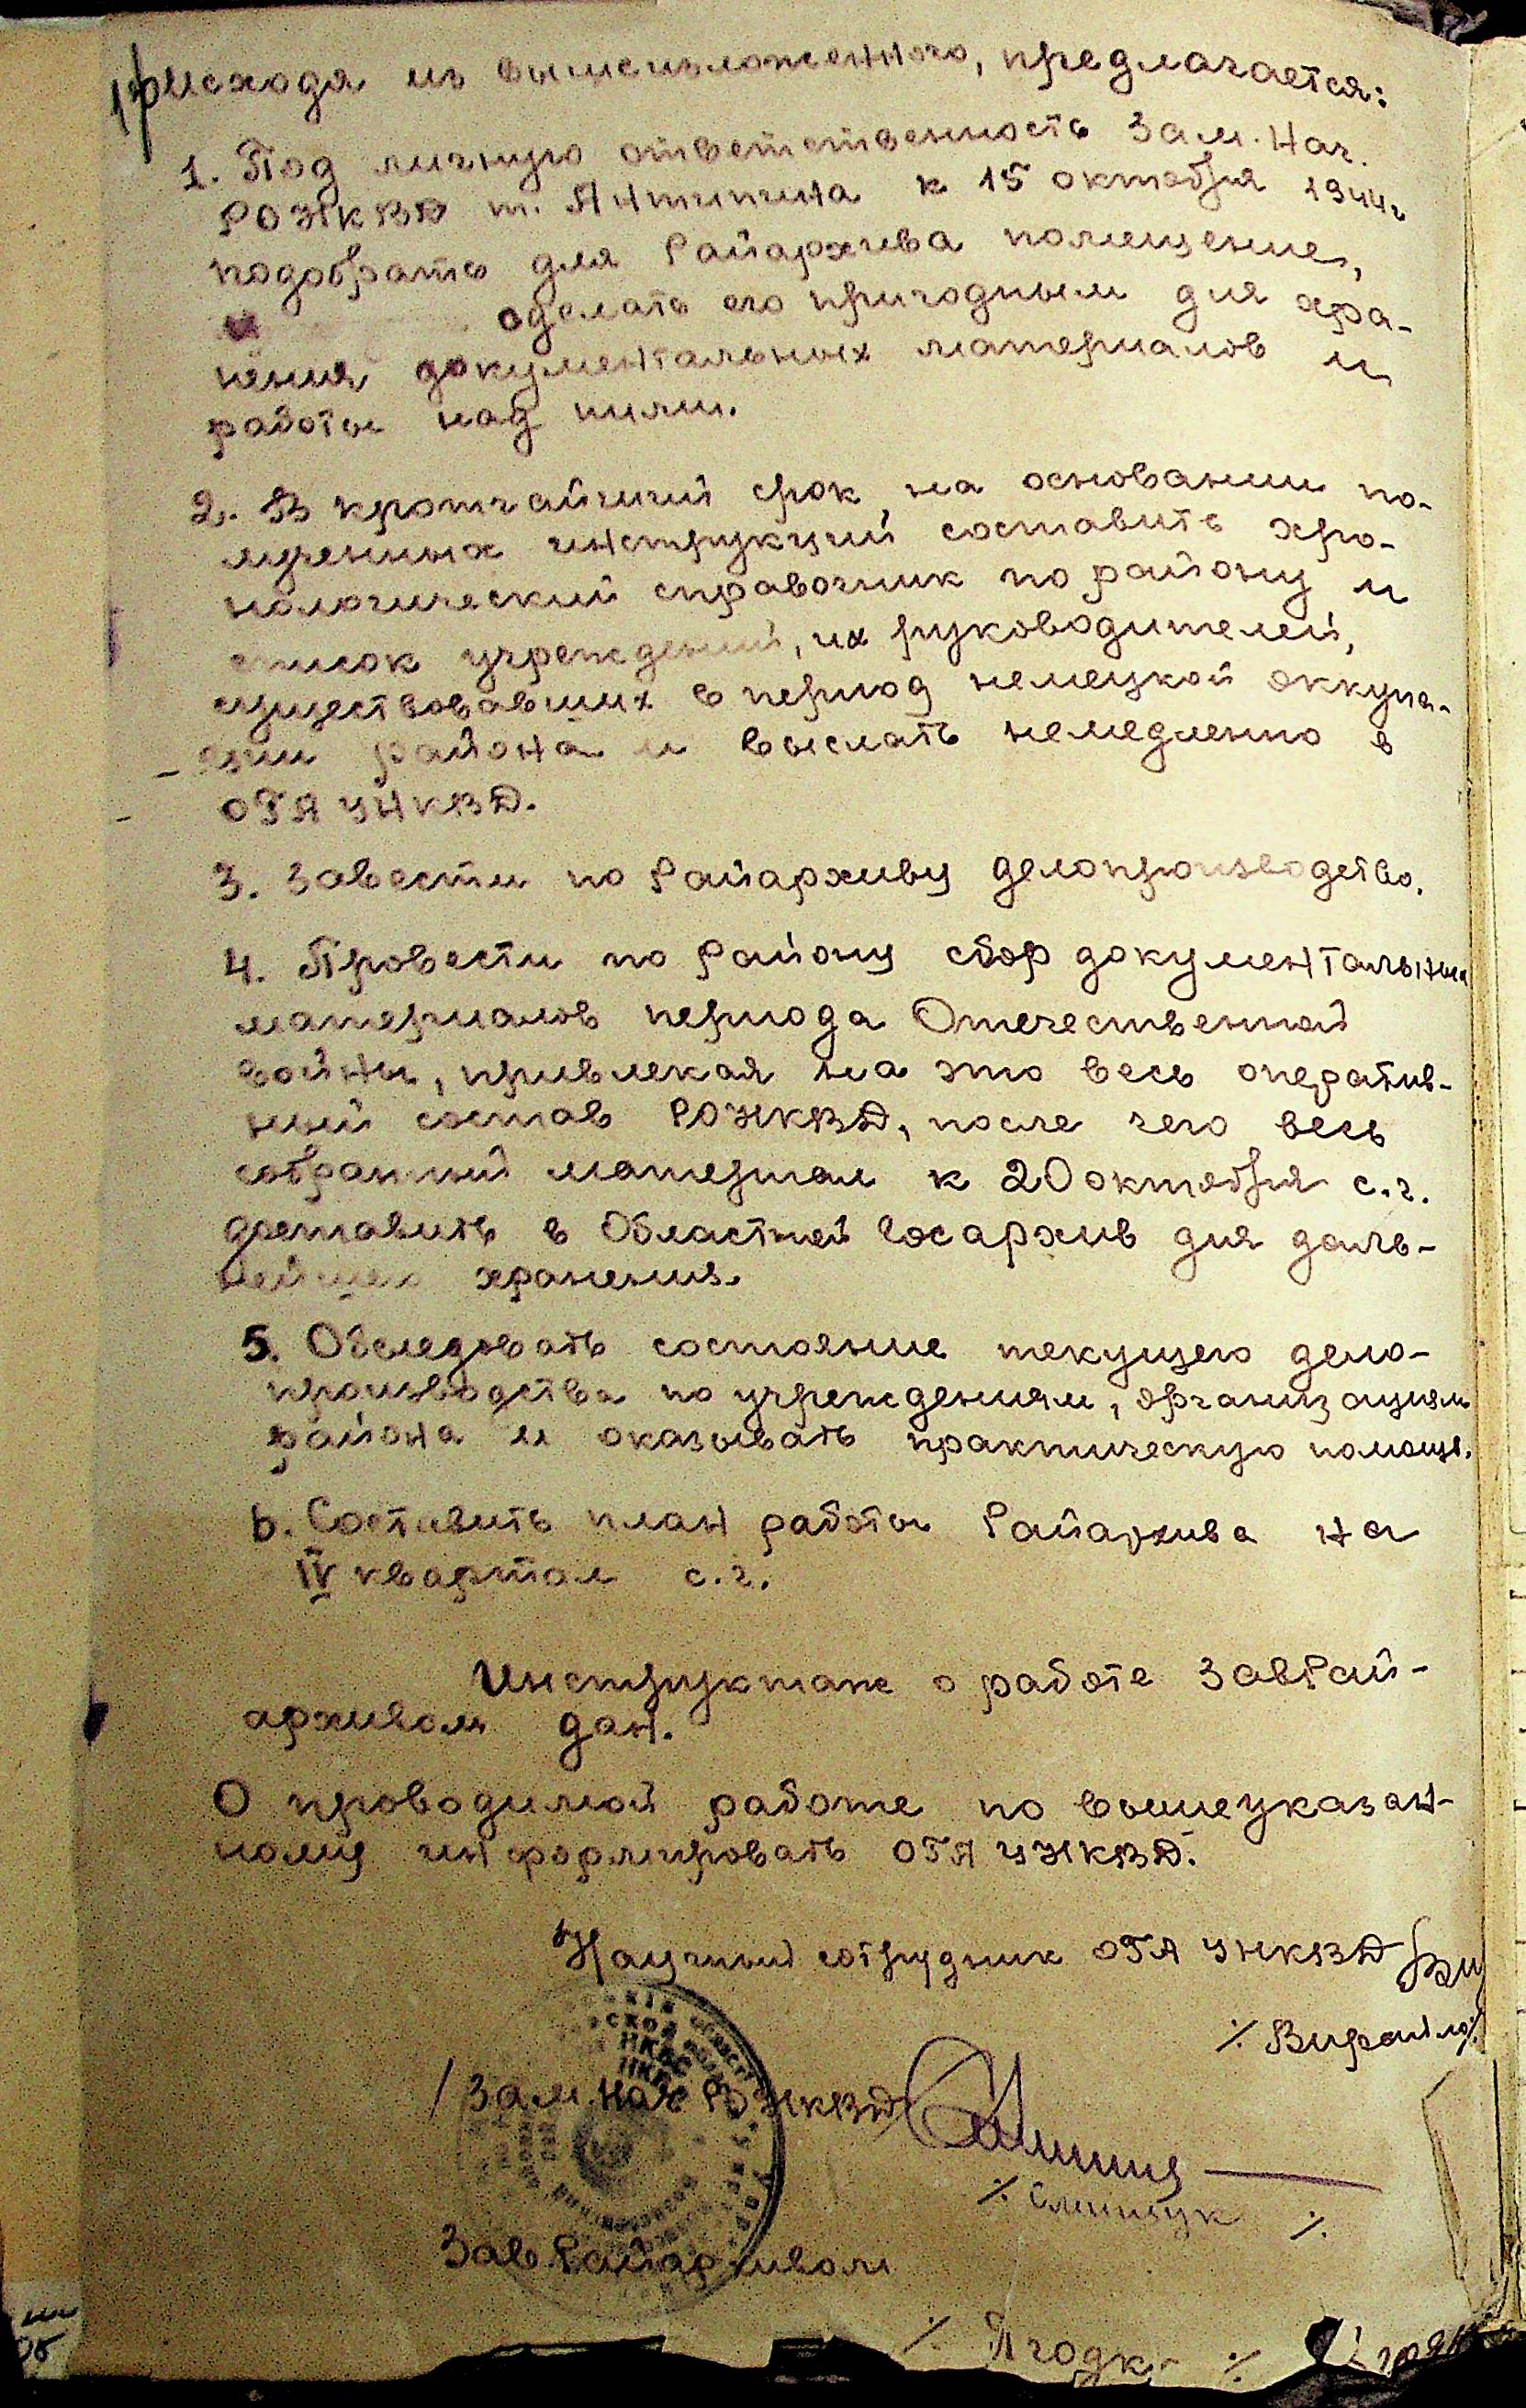 Исходя из вышеизложенного, предлагается:
1. Под личную ответственность Зам. Нач.
РОНКВД т. Антипина к 15 октября 1944г
подобрать для Райархива помещение,
и сделать его пригодным для хра-
нения документальных материалов и
работы над ними.
2. В кротчайший срок, на основании по-
лученных инструкций составить хро-
нологический справочник по району и
список учреждений, их руководителей,
существовавших в период немецкой оккупа-
ции района и выслать немедленно в
ОГА УНКВД.
3. Завести по Райархиву делопроизводство.
4. Провести по району сбор документальных
материалов периода Отечественной
войны, привлекая на это весь оператив-
ный состав РОНКВД, после чего весь
собранный материал к 20 октября с.г.
доставить в Областной Госархив для даль-
нейшего хранения.
5. Обследовать состояние текущего дело-
производства по учреждениям, организациям
района и оказывать практическую помощь.
6. Составить план работы Райархива на
IV квартал с.г.
Инструктаж о работе ЗавРай-
архивом дан.
О проводимой работе по вышеуказан-
ному информировать ОГА УНКВД.
Научный сотрудник ОГА УНКВД
/ Зам. Нач РОНКВД
Зав. Райархивом